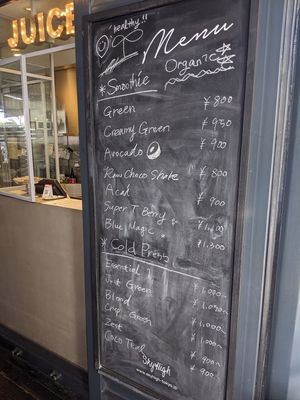 JUICE
healthy!!
Menu
Organic
*Smoothie
Green ¥800
Creamy Green ¥950
Avocado ¥900
Raw Choco Shake ¥800
Acai ¥900
Super T Berry
Blue Magic ¥1,300
*Cold Press
Essential 1
Just Green ¥1,050-
Blood
Crisp Green
Zest
Coco Teal ¥900-
SkyHigh